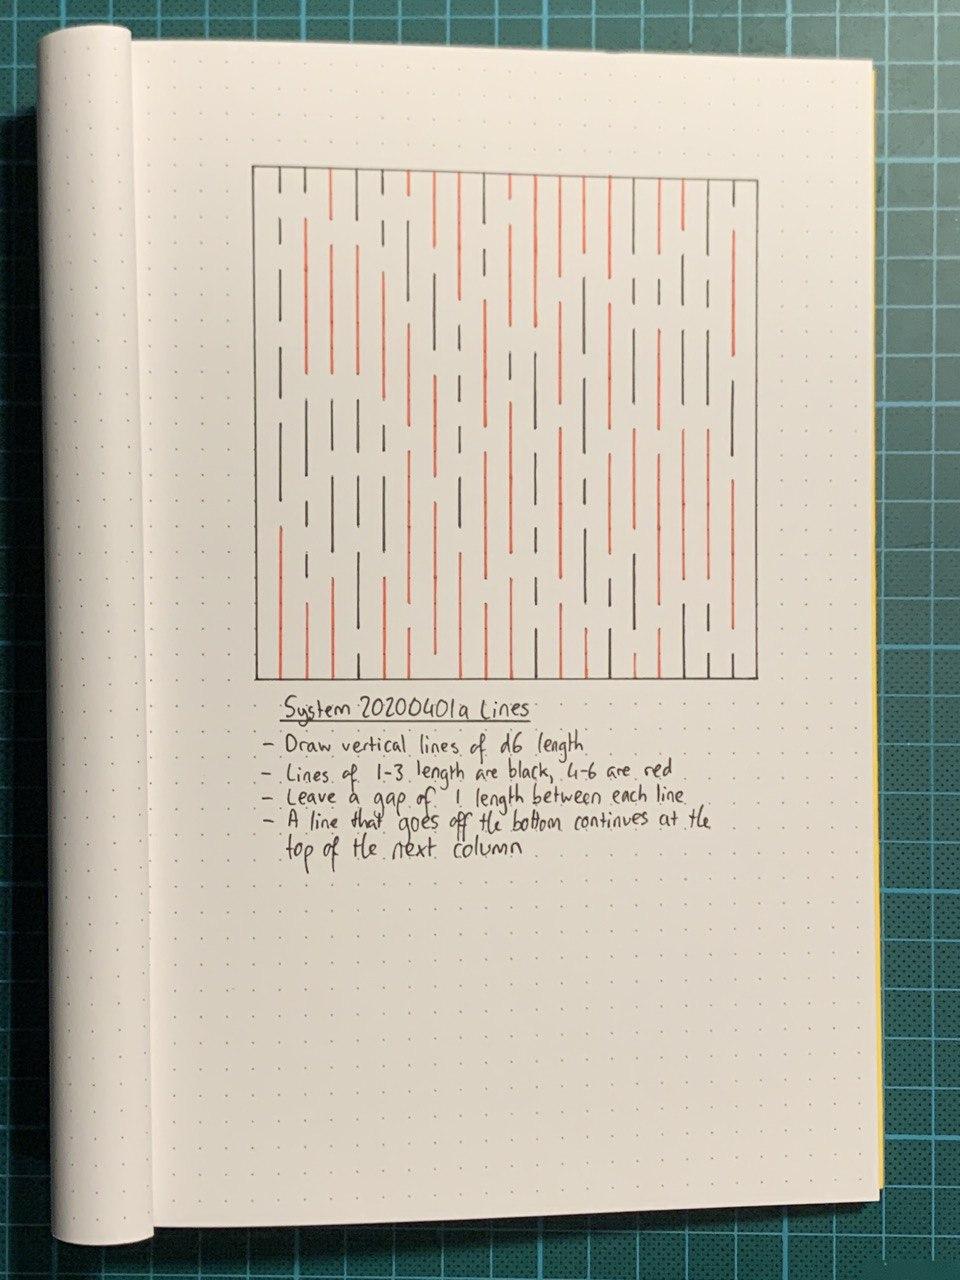 System 20200401a Lines
- Draw vertical lines of d6 length
- Lines of 1-3 length are black, 4-6 are red
- Leave a gap of 1 length between each line
- A line that goes off the bottom continues at the
top of the next column